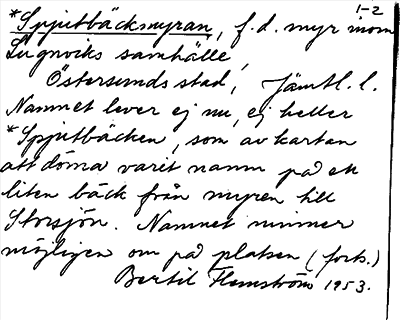 1-2
*Spjutbäcksmyran, f.d. myr inom
Lugnviks samhälle,
Östersunds stad, Jämtl. l.
Namnet lever ej nu, ej heller
*Spjutbäcken, som av kartan
att döma varit namn på en
liten bäck från myren till
Storsjön. Namnet minner
möjligen om på platsen (forts.)
Bertil Flemström 1953.